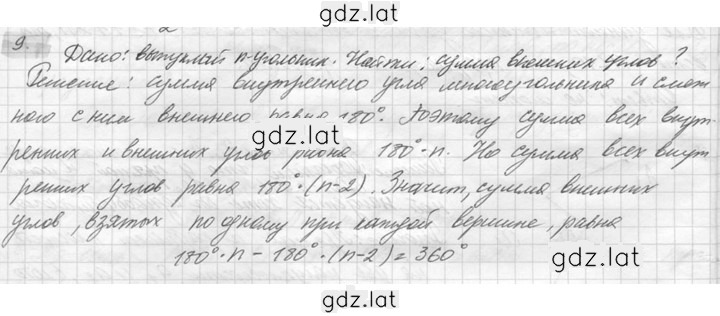 gdz.lat
9.
Дано: выпуклый n-угольник. Найти: сумма внешних углов?
Решение: сумма внутреннего угла многоугольника и смеж
ного с ним внешнего равна 180°. Поэтому сумма всех внут
gdz.lat
ренних и внешних углов равна 180°·n. Но сумма всех внут
ренних углов равна 180°·(n-2). Значит, сумма внешних
углов, взятых по одному при каждой вершине, равна
180°·n - 180°·(n-2) = 360°
gdz.lat
gdz.lat